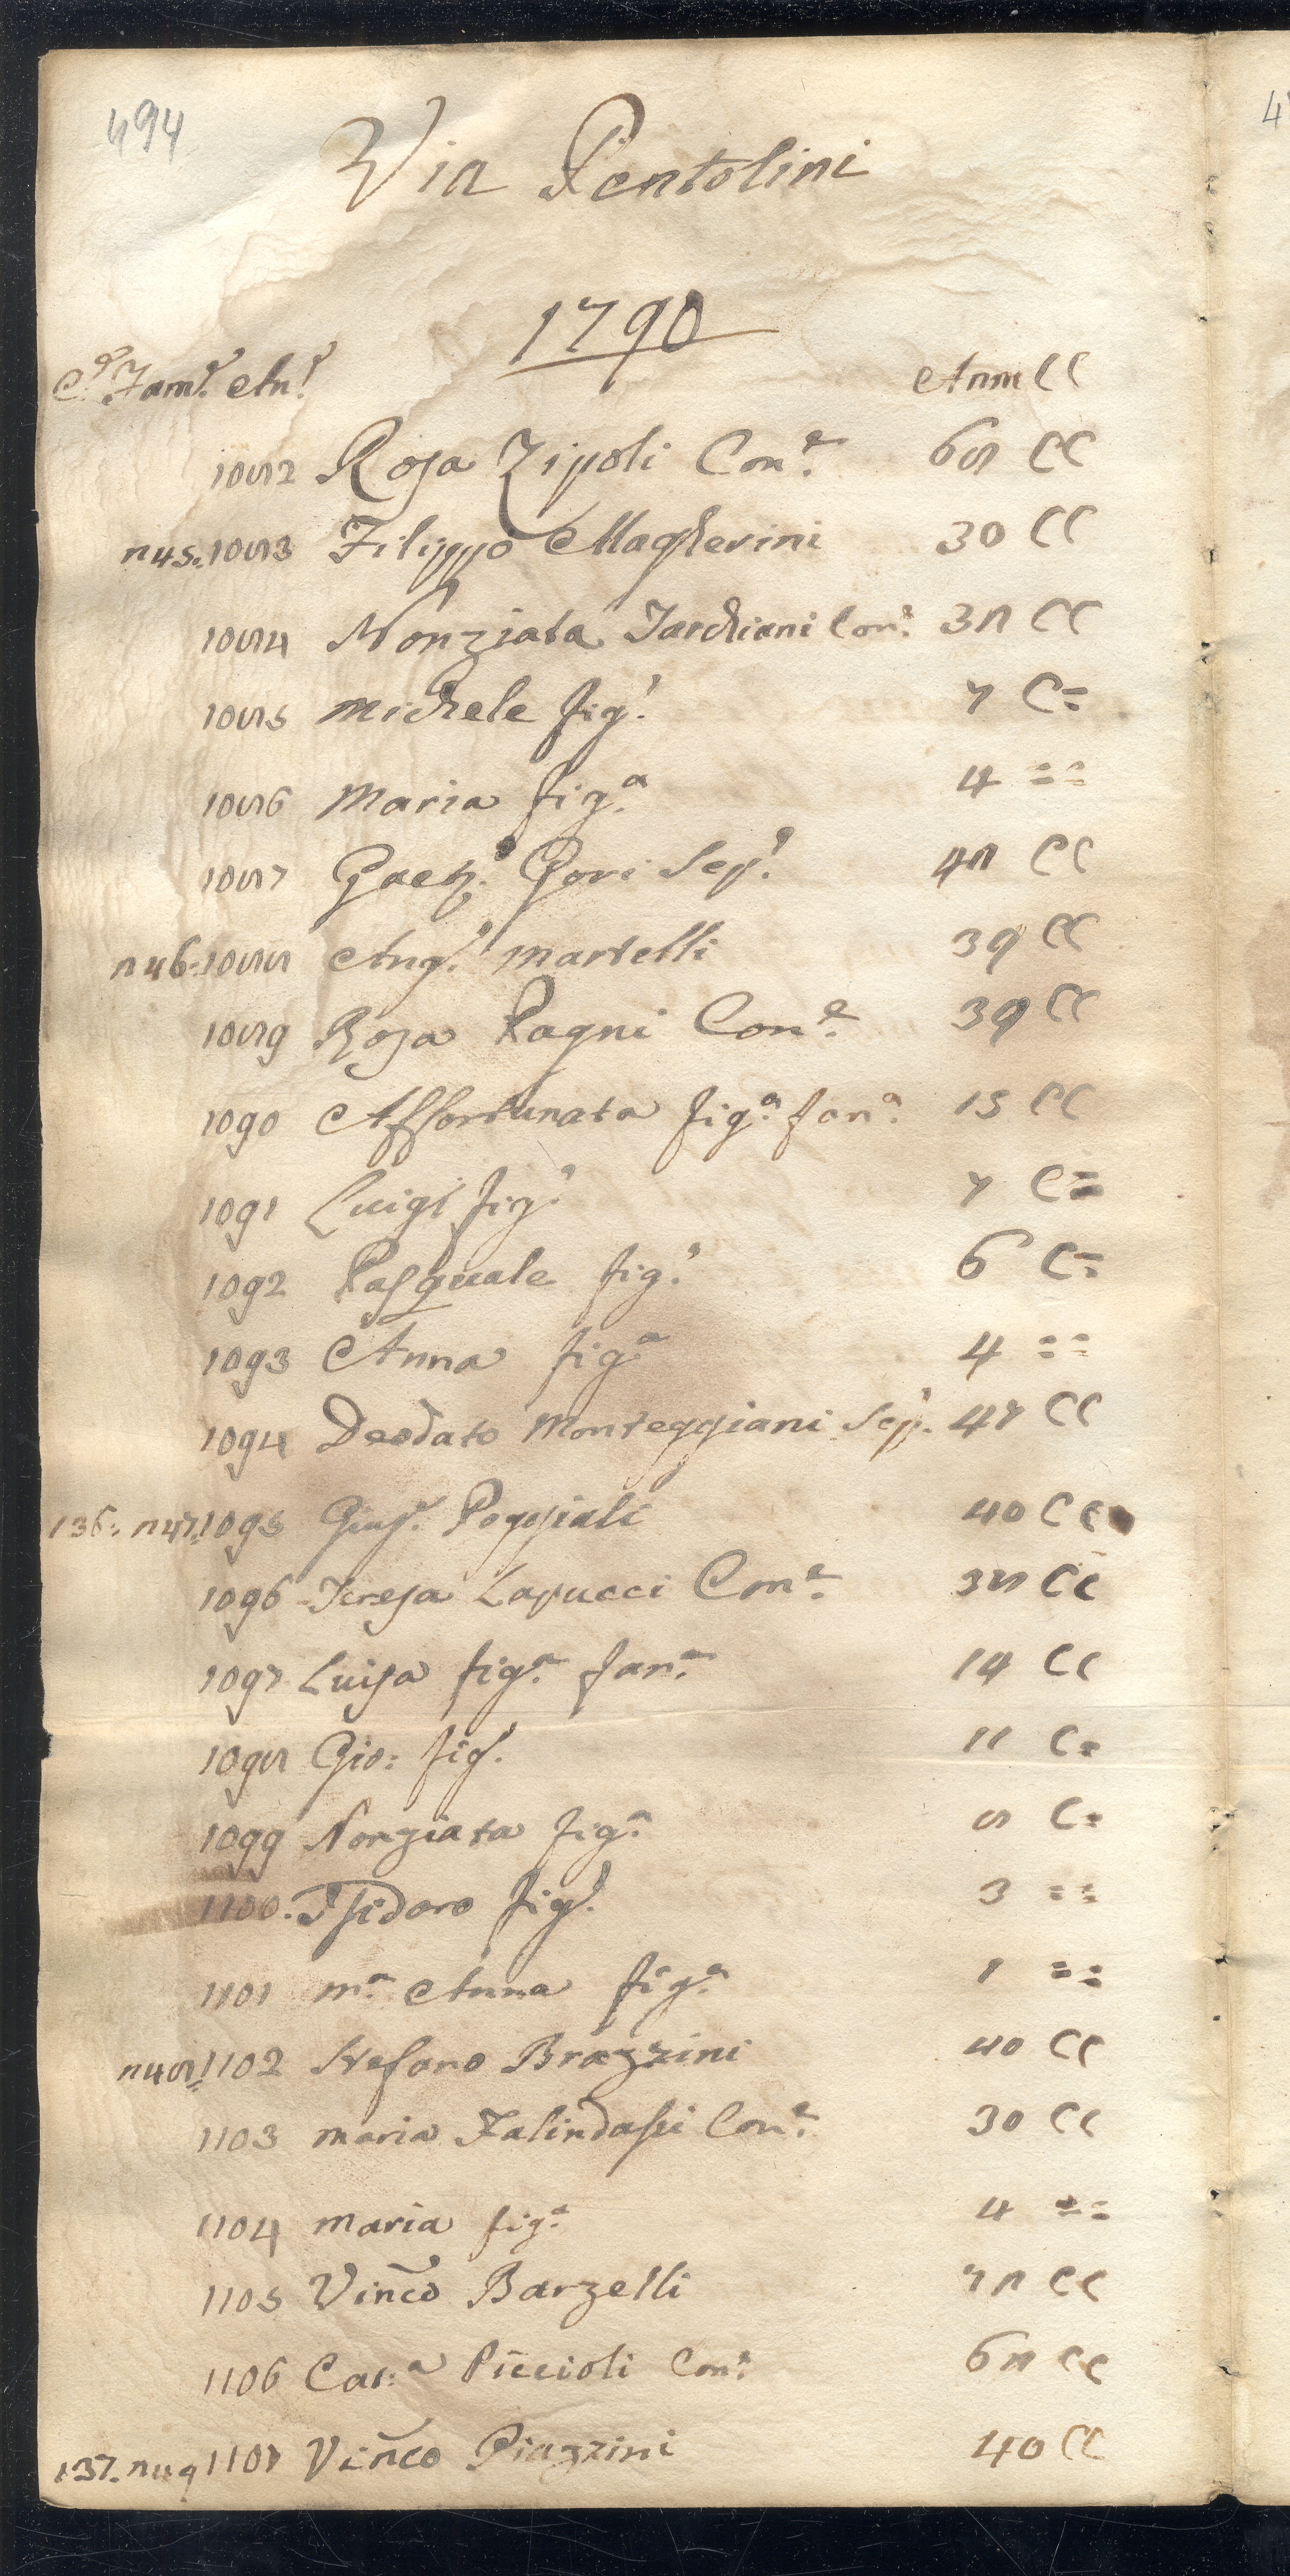 494
Via Pentolini
1790
C.ᵉ Fam.ᵉ An.ᵉ Anm CC
1082 Rosa Zipoli Con.ᵉ 68 CC
n45. 1083 Filippo Magherini 30 CC
1084 Nonziata Tarchiani Con.ᵉ 38 CC
1085 Michele fig.º 7 C=
1086 Maria fig.ª 4 ==
1087 Gaet.º Gori Sep.º 48 CC
n46. 1088 Ang.º Martelli 39 CC
1089 Rosa Pagni Con.ᵉ 39 CC
1090 Affortunata fig.ª fan.ª 15 CC
1091 Luigi fig.º 7 C=
1092 Pasquale fig.º 6 C=
1093 Anna fig.ª 4 ==
1094 Deodato Monteggiani Sep.º 47 CC
136. n47. 1095 Gius.ᵉ Poggiali 40 CC
1096 Teresa Lapucci Con.ᵉ 38 CC
1097 Luisa fig.ª fan.ª 14 CC
1098 Gio: fig.º 11 C=
1099 Nonziata fig.ª 8 C=
1100. Isidoro fig.º 3 ==
1101 M.ª Anna fig.ª 1 ==
n48. 1102 Stefano Brazzini 40 CC
1103 Maria Falindassi Con.ᵉ 30 CC
1104 Maria fig.ª 4 ==
1105 Vinc̃o Barzelli 78 CC
1106 Cat.ª Piccioli Con.ᵉ 68 CC
137. n49 1107 Vinc̃o Piazzini 40 CC